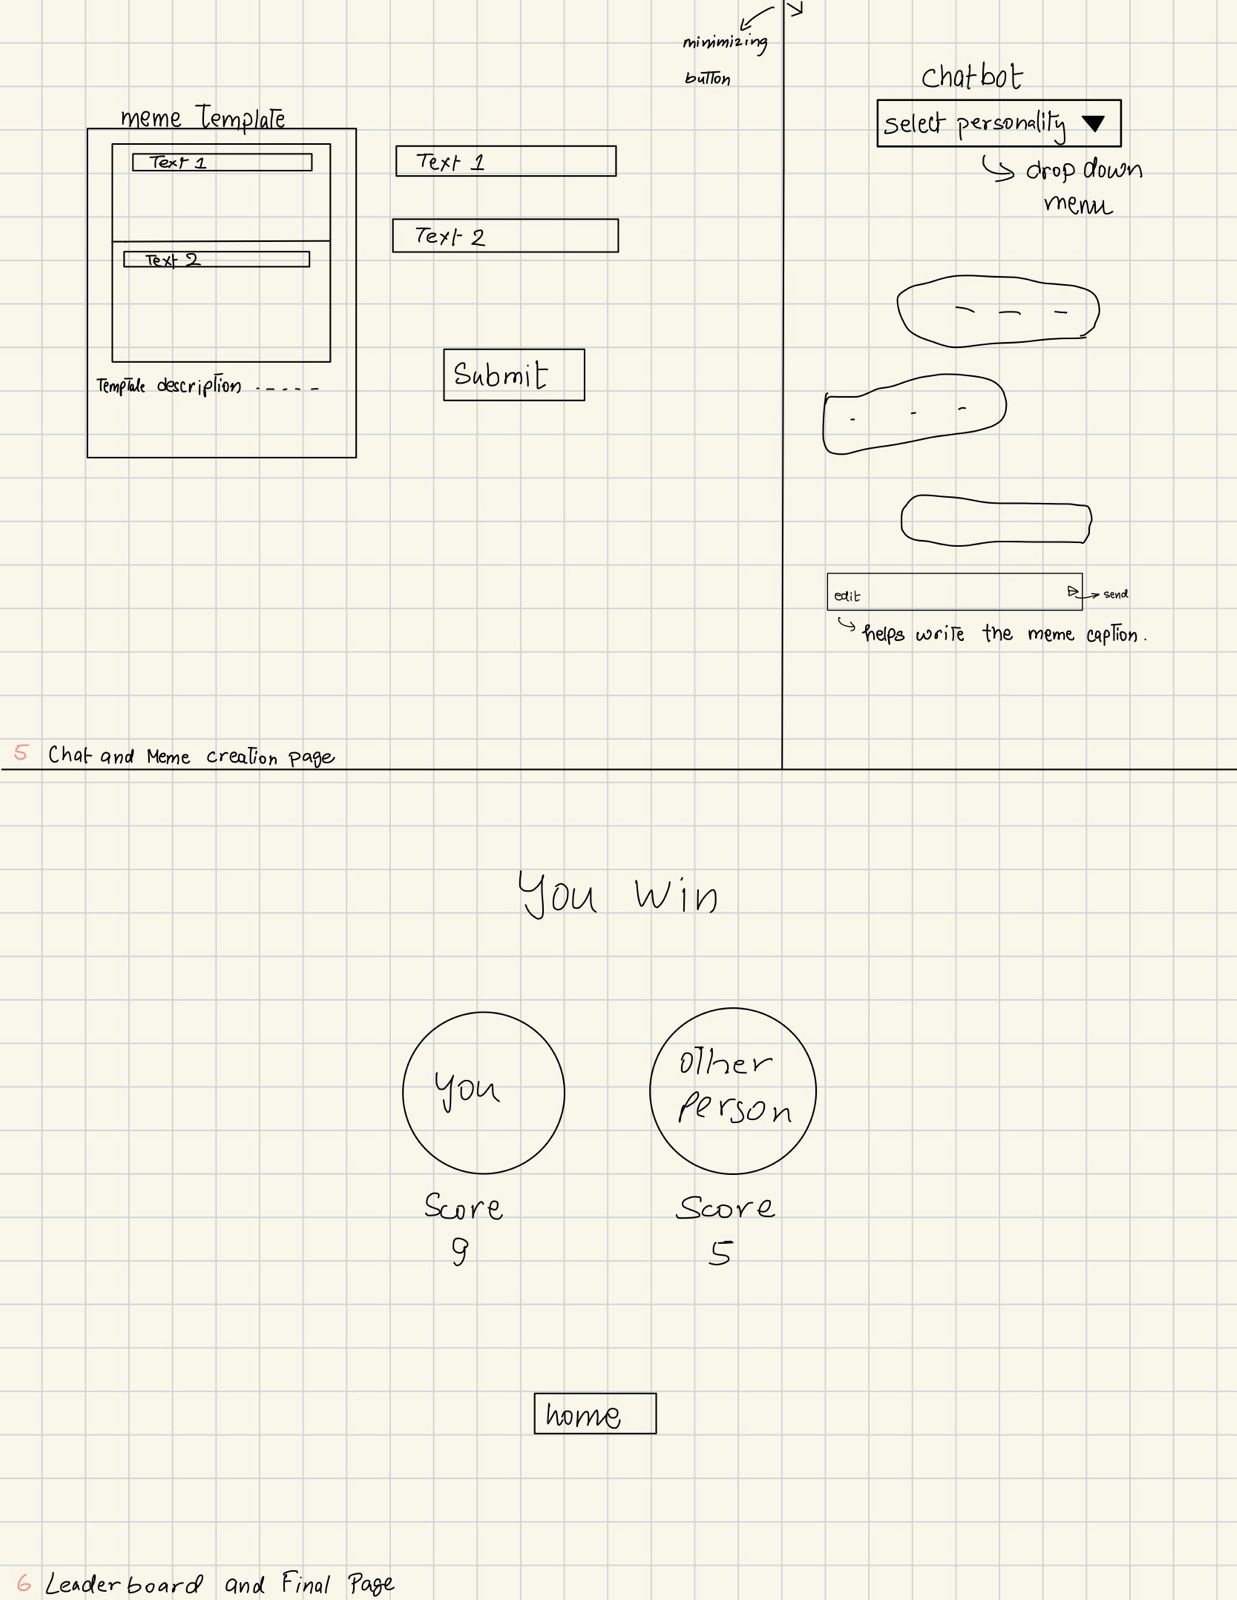 minimizing
button
meme Template
Text 1
Text 2
Template description
Text 1
Text 2
Submit
Chatbot
select personality
drop down
menu
edit
send
helps write the meme caption.
5 Chat and Meme creation page
You Win
you
other
person
Score
9
Score
5
home
6 Leaderboard and Final Page